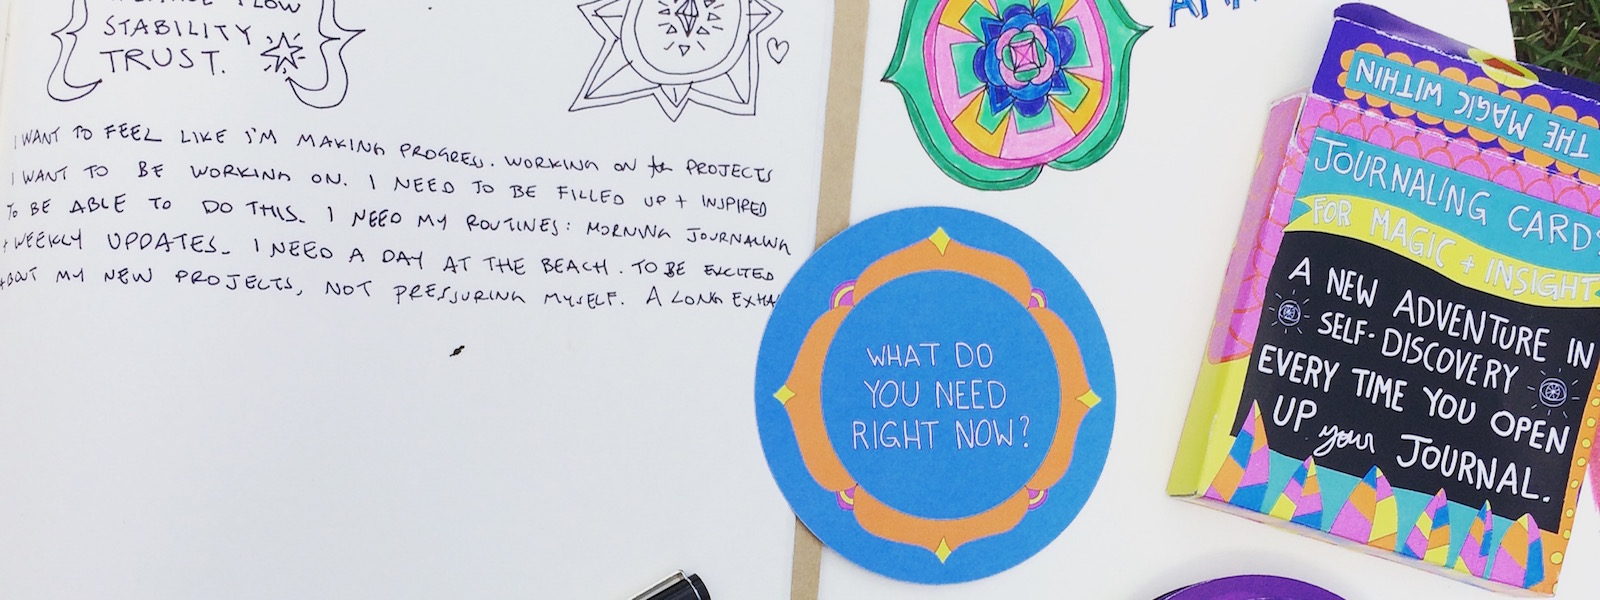 FLOW
STABILITY
TRUST.
I WANT TO FEEL LIKE I'M MAKING PROGRESS. WORKING ON the PROJECTS
I WANT TO BE WORKING ON. I NEED TO BE FILLED UP + INSPIRED
To BE ABLE TO DO THIS. I NEED MY ROUTINES: MORNING JOURNALING
+ WEEKLY UPDATES. I NEED A DAY AT THE BEACH. TO BE EXCITED
ABOUT MY NEW PROJECTS, NOT PRESSURING MYSELF. A LONG EXHA
WHAT DO
YOU NEED
RIGHT NOW?
THE MAGIC WITHIN
JOURNALING CARDS
FOR MAGIC + INSIGHT
A NEW ADVENTURE IN
SELF-DISCOVERY
EVERY TIME YOU OPEN
UP your JOURNAL.